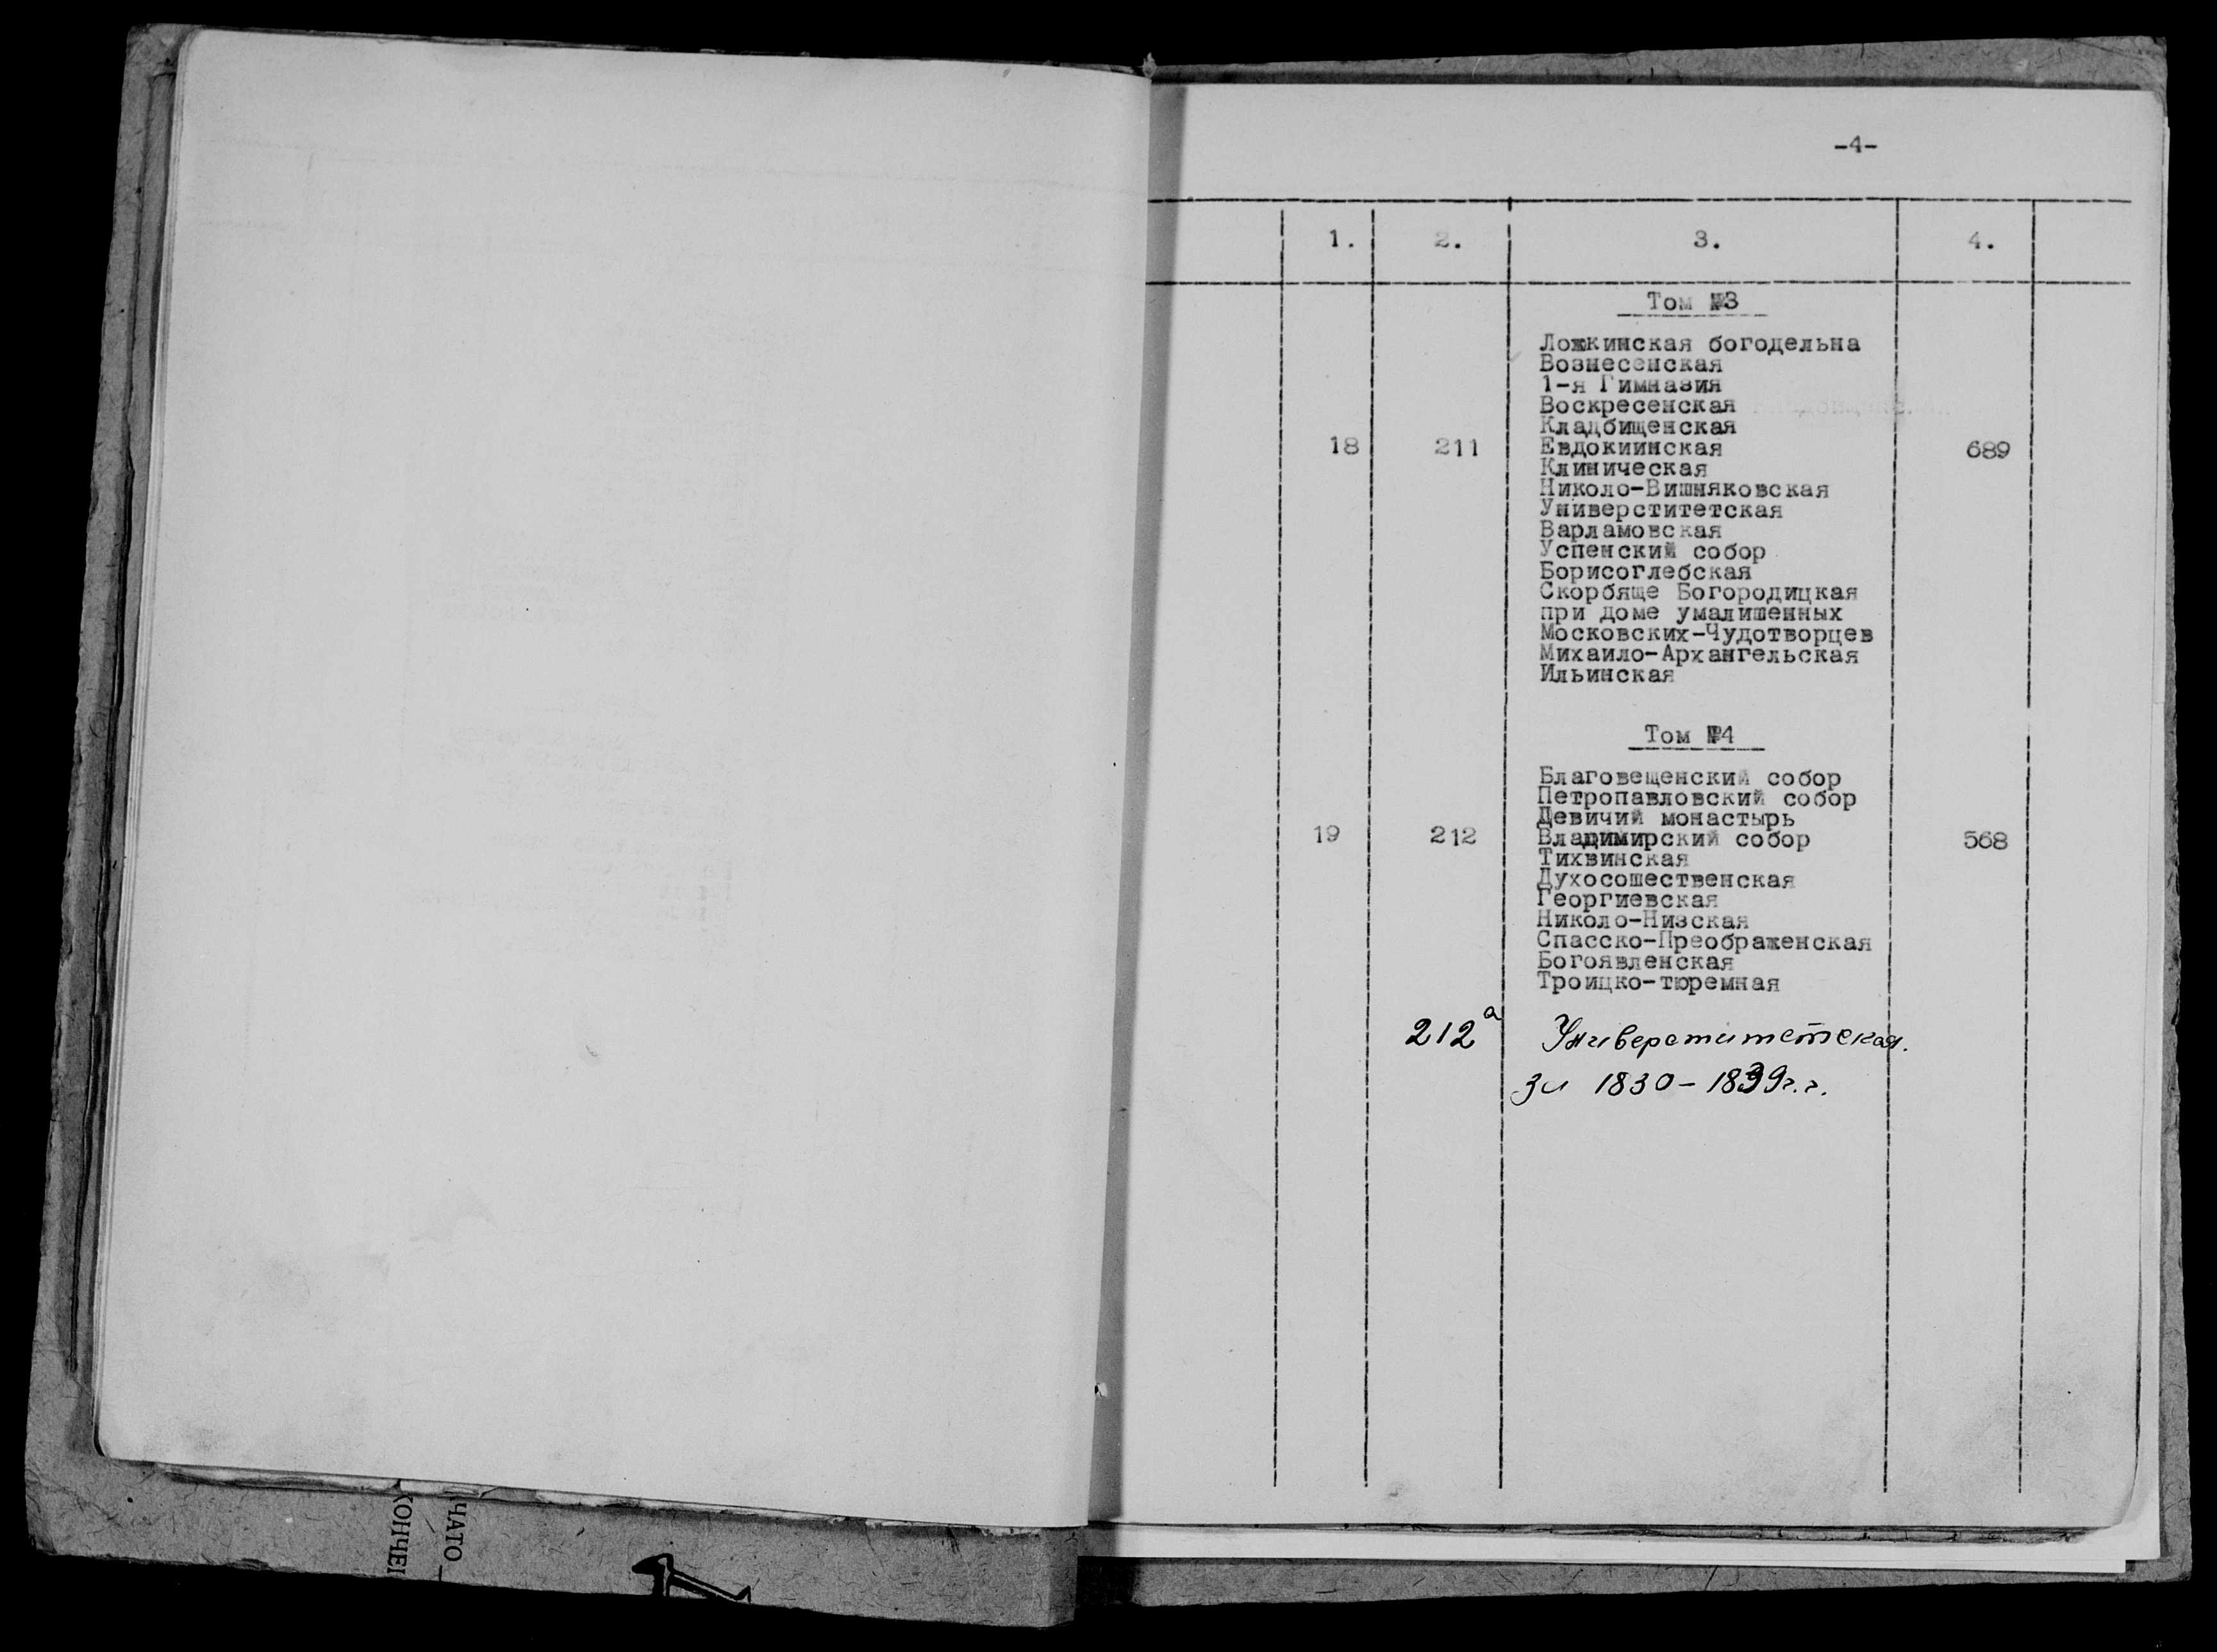 -4-
1. 2. 3. 4.
Том №3
Ложкинская богодельна
Вознесенская
1-я Гимназия
Воскресенская
Кладбищенская
18 211 Евдокиинская 689
Клиническая
Николо-Вишняковская
Универститетская
Варламовская
Успенский собор
Борисоглебская
Скорбяще Богородицкая
при доме умалишенных
Московских-Чудотворцев
Михаило-Архангельская
Ильинская
Том №4
Благовещенский собор
Петропавловский собор
Девичий монастырь
19 212 Владимирский собор 568
Тихвинская
Духосошественская
Георгиевская
Николо-Низская
Спасско-Преображенская
Богоявленская
Троицко-тюремная
212а Университетская.
за 1830-1839г.г.
ЧАТО
КОНЧЕ